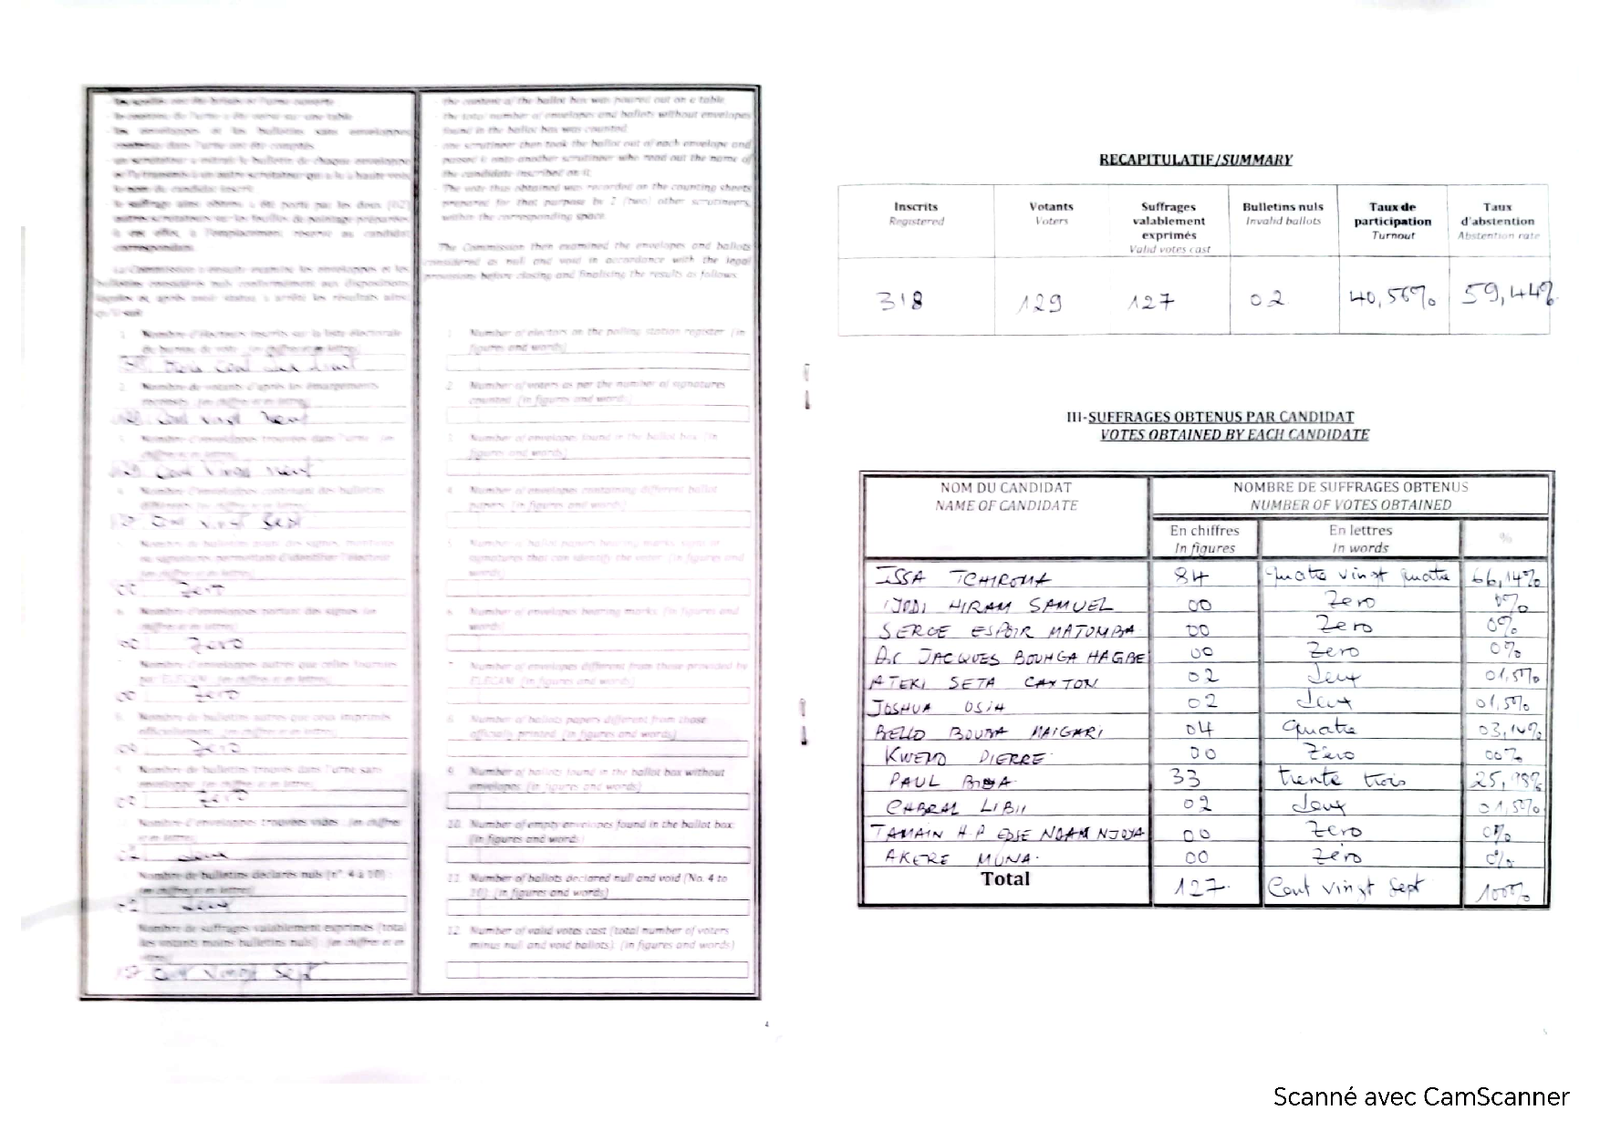 - les scellés ont été brisés et l'urne ouverte
- le contenu de l'urne a été versé sur une table
- les enveloppes et les bulletins sans enveloppes
contenus dans l'urne ont été comptés
- un scrutateur a extrait le bulletin de chaque enveloppe
et l'a transmis à un autre scrutateur qui a lu à haute voix
le nom du candidat inscrit
- le suffrage ainsi obtenu a été porté par les deux (02)
autres scrutateurs sur les feuilles de pointage préparées
à cet effet, à l'emplacement réservé au candidat
correspondant.
La Commission a ensuite examiné les enveloppes et les
bulletins considérés nuls conformément aux dispositions
légales et, après avoir statué, a arrêté les résultats ainsi
qu'il suit
1. Nombre d'électeurs inscrits sur la liste électorale
du bureau de vote (en chiffres et en lettres)
2. Nombre de votants d'après les émargements
(en chiffres et en lettres)
129 Cent vingt neuf
3. Nombre d'enveloppes trouvées dans l'urne (en
chiffres et en lettres)
129 Cent vingt neuf
4. Nombre d'enveloppes contenant des bulletins
différents (en chiffres et en lettres)
Cent vingt sept
00 Zero
00 Zero
00 Zero
00 Zero
00 Zero
Nombre d'enveloppes trouvées vides (en chiffres
et en lettres)
02 deux
Nombre de bulletins déclarés nuls (n° 4 à 10) :
(en chiffres et en lettres)
02 deux
Nombre de suffrages valablement exprimés (total
les votants moins bulletins nuls) (en chiffres et en
lettres)
127 Cent vingt sept
- the content of the ballot box was poured out on a table
- the total number of envelopes and ballots without envelopes
found in the ballot box was counted
- one scrutineer then took the ballot out of each envelope and
passed it unto another scrutineer who read out the name of
the candidate inscribed on it;
- The vote thus obtained was recorded on the counting sheets
prepared for that purpose by 2 (two) other scrutineers,
within the corresponding space.
The Commission then examined the envelopes and ballots
considered as null and void in accordance with the legal
provisions before closing and finalising the results as follows:
1. Number of electors on the polling station register (in
figures and words)
2. Number of voters as per the number of signatures
counted. (in figures and words)
3. Number of envelopes found in the ballot box (in
figures and words)
4. Number of envelopes containing different ballot
papers. (in figures and words)
5. Number of ballot papers bearing marks, signs or
signatures that can identify the voter. (in figures and
words)
6. Number of envelopes bearing marks. (in figures and
words)
7. Number of envelopes different from those provided by
ELECAM. (in figures and words)
8. Number of ballots papers different from those
officially printed. (in figures and words)
9. Number of ballots found in the ballot box without
envelopes. (in figures and words)
10. Number of empty envelopes found in the ballot box.
(in figures and words)
11. Number of ballots declared null and void (No. 4 to
10): (in figures and words)
12. Number of valid votes cast (total number of voters
minus null and void ballots). (in figures and words)
4
RECAPITULATIF/SUMMARY
Inscrits Registered
Votants Voters
Suffrages valablement exprimés Valid votes cast
Bulletins nuls Invalid ballots
Taux de participation Turnout
Taux d'abstention Abstention rate
318 129 127 02 40,56% 59,44%
III-SUFFRAGES OBTENUS PAR CANDIDAT
VOTES OBTAINED BY EACH CANDIDATE
NOM DU CANDIDAT NOMBRE DE SUFFRAGES OBTENUS
NAME OF CANDIDATE NUMBER OF VOTES OBTAINED
En chiffres En lettres %
In figures In words
ISSA TCHIROMA 84 quatre vingt quatre 66,14%
IJODI HIRAM SAMUEL 00 Zero 0%
SERGE ESPOIR MATOMBA 00 Zero 0%
JACQUES BOUHGA HAGBE 00 Zero 0%
ATEKI SETA CAXTON 02 deux 01,57%
JOSHUA OSIH 02 deux 01,57%
BELLO BOUBA MAIGARI 04 quatre 03,14%
KWEMO PIERRE 00 Zéro 00%
PAUL BIYA 33 trente trois 25,98%
CABRAL LIBII 02 deux 01,57%
TAMAIN H.P EDIE NGAM NJOYA 00 Zero 0%
AKERE MUNA 00 Zéro 0%
Total 127 Cent vingt sept 100%
Scanné avec CamScanner